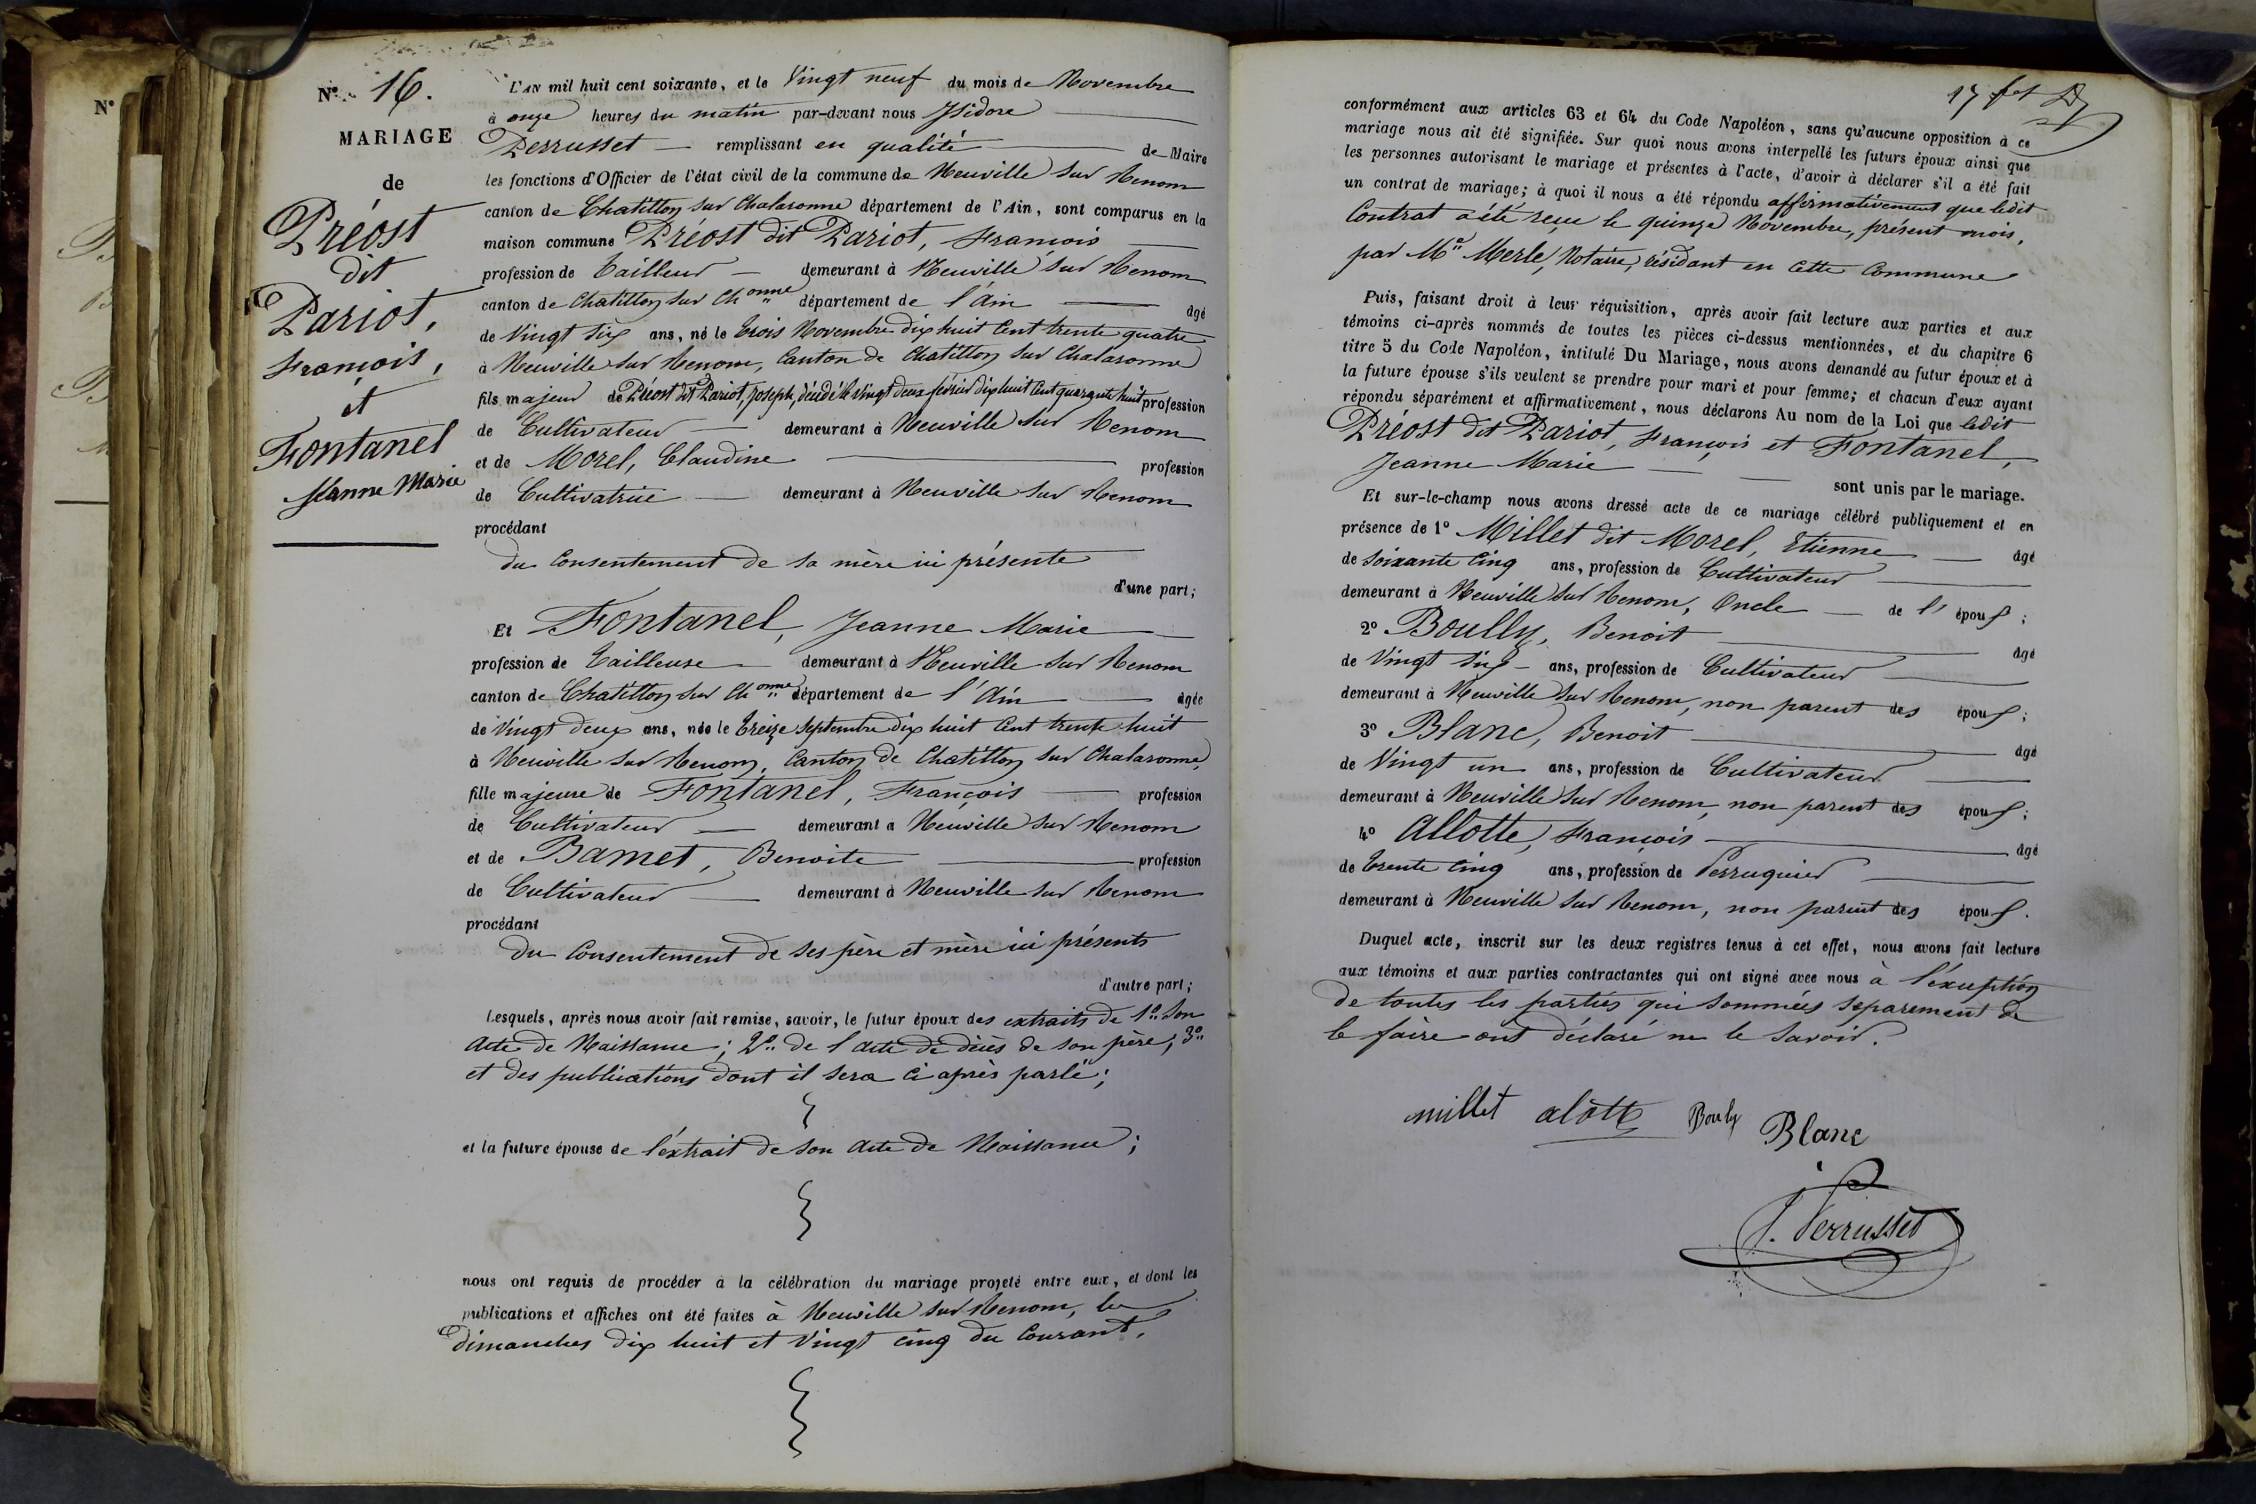 N°
N° 16.
MARIAGE
de
Préost
dit
Pariot,
François,
et
Fontanel
Jeanne Marie
L'AN mil huit cent soixante, et le Vingt neuf du mois de Novembre
à onze heures du matin par-devant nous Isidore
Perrusset — remplissant en qualité de Maire
les fonctions d'Officier de l'état civil de la commune de Neuville sur Renom
canton de Chatillon sur Chalaronne département de l'Ain, sont comparus en la
maison commune Préost dit Pariot, François
profession de Tailleur — demeurant à Neuville sur Renom
canton de Chatillon sur Chonne département de l'Ain âgé
de Vingt six ans, né le trois Novembre dix huit cent trente quatre
à Neuville sur Renom, Canton de Chatillon sur Chalaronne
fils majeur de Préost dit Pariot, Joseph, décédé le vingt deux février dix huit cent quarante huit profession
de Cultivateur — demeurant à Neuville sur Renom
et de Morel, Claudine profession
de Cultivatrice — demeurant à Neuville sur Renom
procédant
du Consentement de sa mère ici présente
d'une part;
Et Fontanel, Jeanne Marie
profession de Tailleuse — demeurant à Neuville sur Renom
canton de Chatillon sur Chonne département de l'Ain âgée
de Vingt deux ans, née le treize Septembre dix huit cent trente huit
à Neuville sur Renom, Canton de Chatillon sur Chalaronne,
fille majeure de Fontanel, François profession
de Cultivateur — demeurant à Neuville sur Renom
et de Bamet, Benoite profession
de Cultivateur — demeurant à Neuville sur Renom
procédant
du Consentement de ses père et mère ici présents
d'autre part;
Lesquels, après nous avoir fait remise, savoir, le futur époux des extraits de 1° son
acte de Naissance; 2° de l'acte de décès de son père; 3°
et des publications dont il sera ci après parlé;
et la future épouse de l'extrait de son acte de Naissance;
nous ont requis de procéder à la célébration du mariage projeté entre eux, et dont les
publications et affiches ont été faites à Neuville sur Renom, les
dimanches dix huit et vingt cinq du Courant,
conformément aux articles 63 et 64 du Code Napoléon, sans qu'aucune opposition à ce
mariage nous ait été signifiée. Sur quoi nous avons interpellé les futurs époux ainsi que
les personnes autorisant le mariage et présentes à l'acte, d'avoir à déclarer s'il a été fait
un contrat de mariage; à quoi il nous a été répondu affirmativement que ledit
Contrat a été reçu le quinze Novembre, présent mois,
par Me Merle, Notaire, résidant en cette Commune
Puis, faisant droit à leur réquisition, après avoir fait lecture aux parties et aux
témoins ci-après nommés de toutes les pièces ci-dessus mentionnées, et du chapitre 6
titre 5 du Code Napoléon, intitulé Du Mariage, nous avons demandé au futur époux et à
la future épouse s'ils veulent se prendre pour mari et pour femme; et chacun d'eux ayant
répondu séparément et affirmativement, nous déclarons Au nom de la Loi que ledit
Préost dit Pariot, François et Fontanel,
Jeanne Marie — sont unis par le mariage.
Et sur-le-champ nous avons dressé acte de ce mariage célébré publiquement et en
présence de 1° Millet dit Morel, Etienne — âgé
de soixante cinq ans, profession de Cultivateur
demeurant à Neuville sur Renom, Oncle — de l' époux;
2° Boully, Benoit âgé
de Vingt six — ans, profession de Cultivateur
demeurant à Neuville sur Renom, non parent des époux;
3° Blanc, Benoit âgé
de Vingt un ans, profession de Cultivateur
demeurant à Neuville sur Renom, non parent des époux;
4° Allotte, François âgé
de trente cinq ans, profession de Perruquier
demeurant à Neuville sur Renom, non parent des époux.
Duquel acte, inscrit sur les deux registres tenus à cet effet, nous avons fait lecture
aux témoins et aux parties contractantes qui ont signé avec nous à l'exeption
de toutes les parties qui sommées séparement de
le faire ont déclaré ne le savoir.
millet alott Bouly Blanc
J. Perrusset